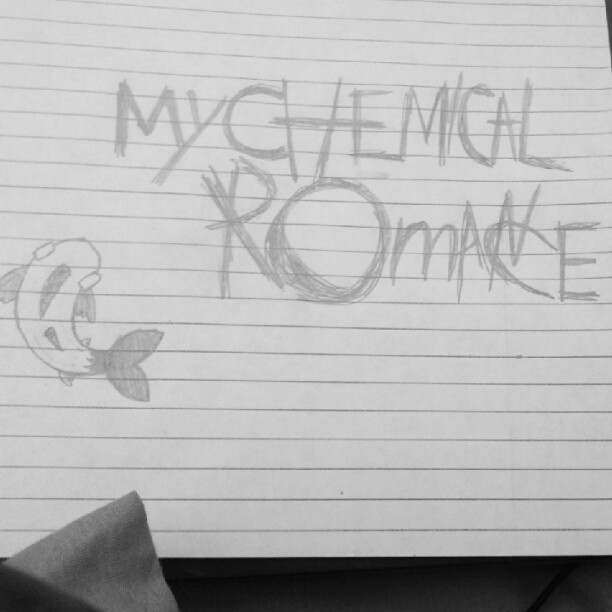 MY CHEMICAL
ROMANCE